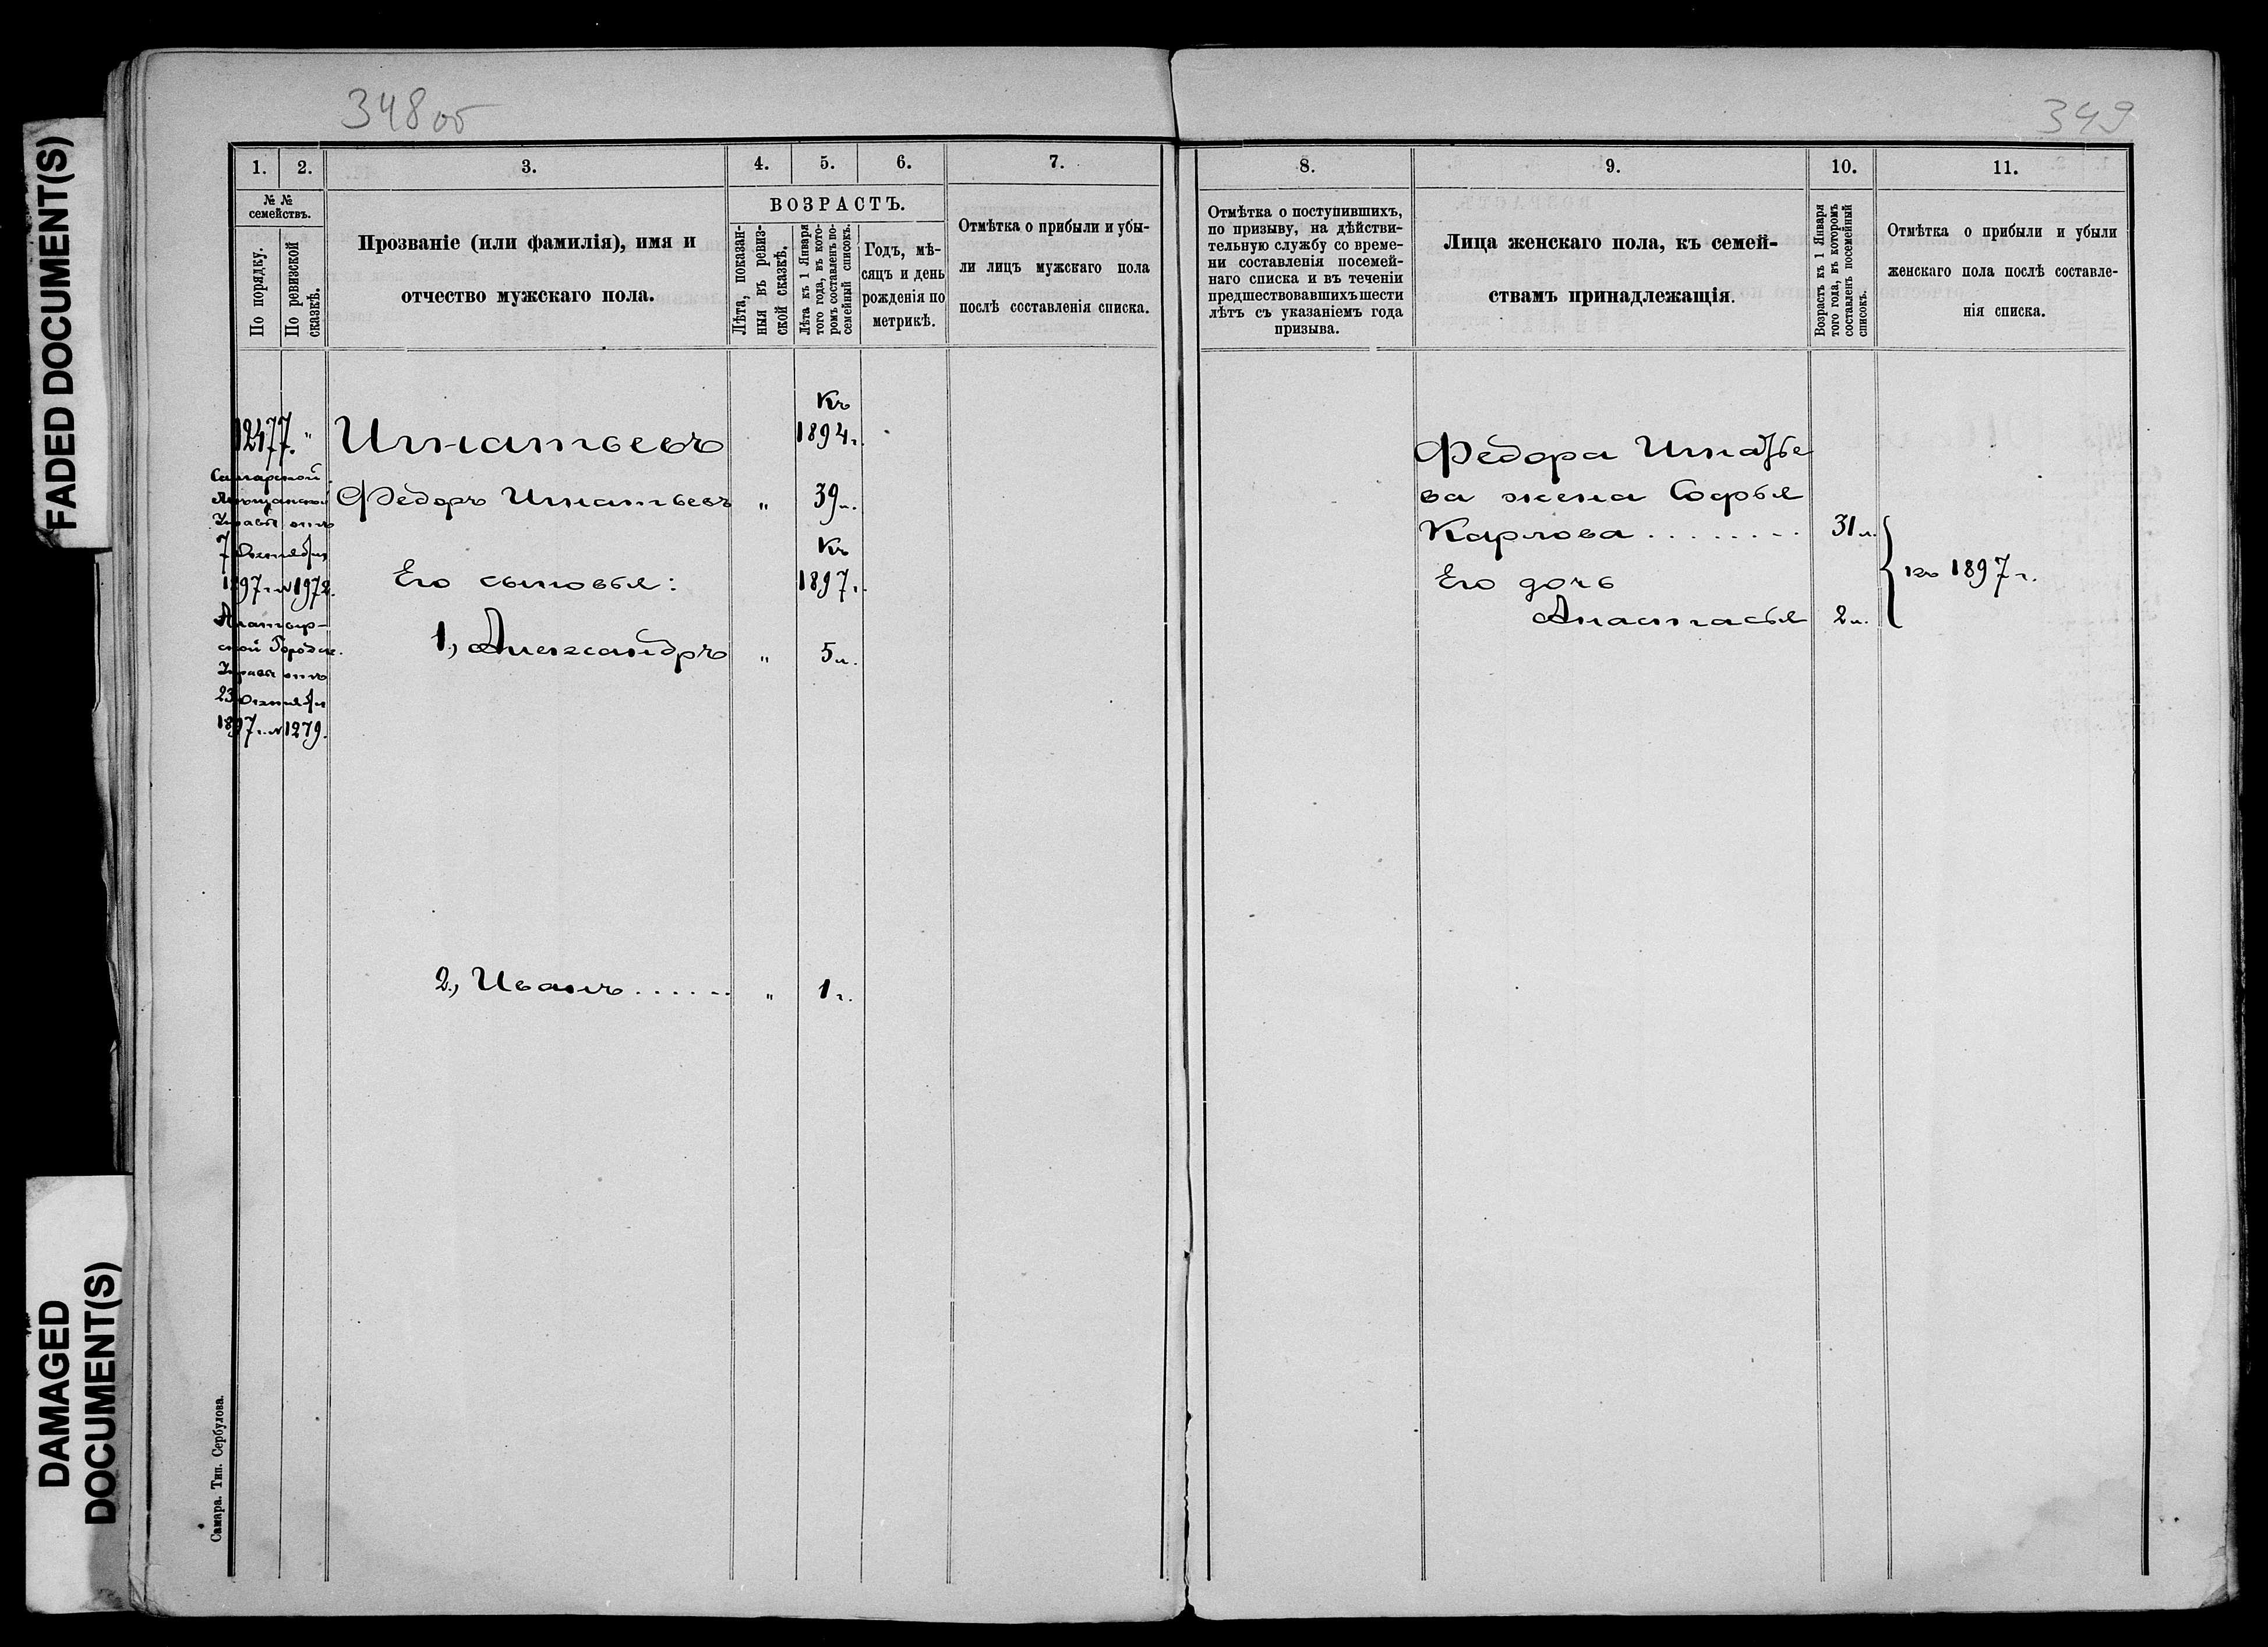 FADED DOCUMENT(S)
DAMAGED
DOCUMENT(S)
348об
1. 2. 3. 4. 5. 6. 7.
№ №
семействъ.
По порядку.
По ревизской
сказкѣ.
Прозваніе (или фамилія), имя и
отчество мужскаго пола.
ВОЗРАСТЪ.
Лѣта, показан-
ныя въ ревиз-
ской сказкѣ.
Лѣта къ 1 Января
того года, въ кото-
ромъ составленъ по-
семейный списокъ.
Годъ, мѣ-
сяцъ и день
рожденія по
метрикѣ.
Отмѣтка о прибыли и убы-
ли лицъ мужскаго пола
послѣ составленія списка.
12477. "
Самарской
Мѣщанской
Управы отъ
7 Октября
1897 г. № 1972.
Алатыр-
ской Городск.
Управы отъ
23 Октября
1897 г. № 1279.
Игнатьевъ
Къ
1894 г.
Федоръ Игнатьевъ " 39 л.
Его сыновья:
Къ
1897 г.
1., Александръ " 5 л.
2., Иванъ ...... " 1 г.
Самара. Тип. Сербулова.
349
8. 9. 10. 11.
Отмѣтка о поступившихъ,
по призыву, на дѣйстви-
тельную службу со време-
ни составленія посемей-
наго списка и въ теченіи
предшествовавшихъ шести
лѣтъ съ указаніемъ года
призыва.
Лица женскаго пола, къ семей-
ствамъ принадлежащія.
Возрастъ къ 1 Января
того года, въ которомъ
составленъ посемейный
списокъ.
Отмѣтка о прибыли и убыли
женскаго пола послѣ составле-
нія списка.
Федора Игнатье
ва жена Софья
Карлова ........ 31 л.
Его дочь
Анастасья 2 л.
къ 1897 г.